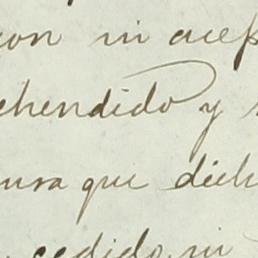 con ni acep
ehendido y
ura que dich
cedido, ni